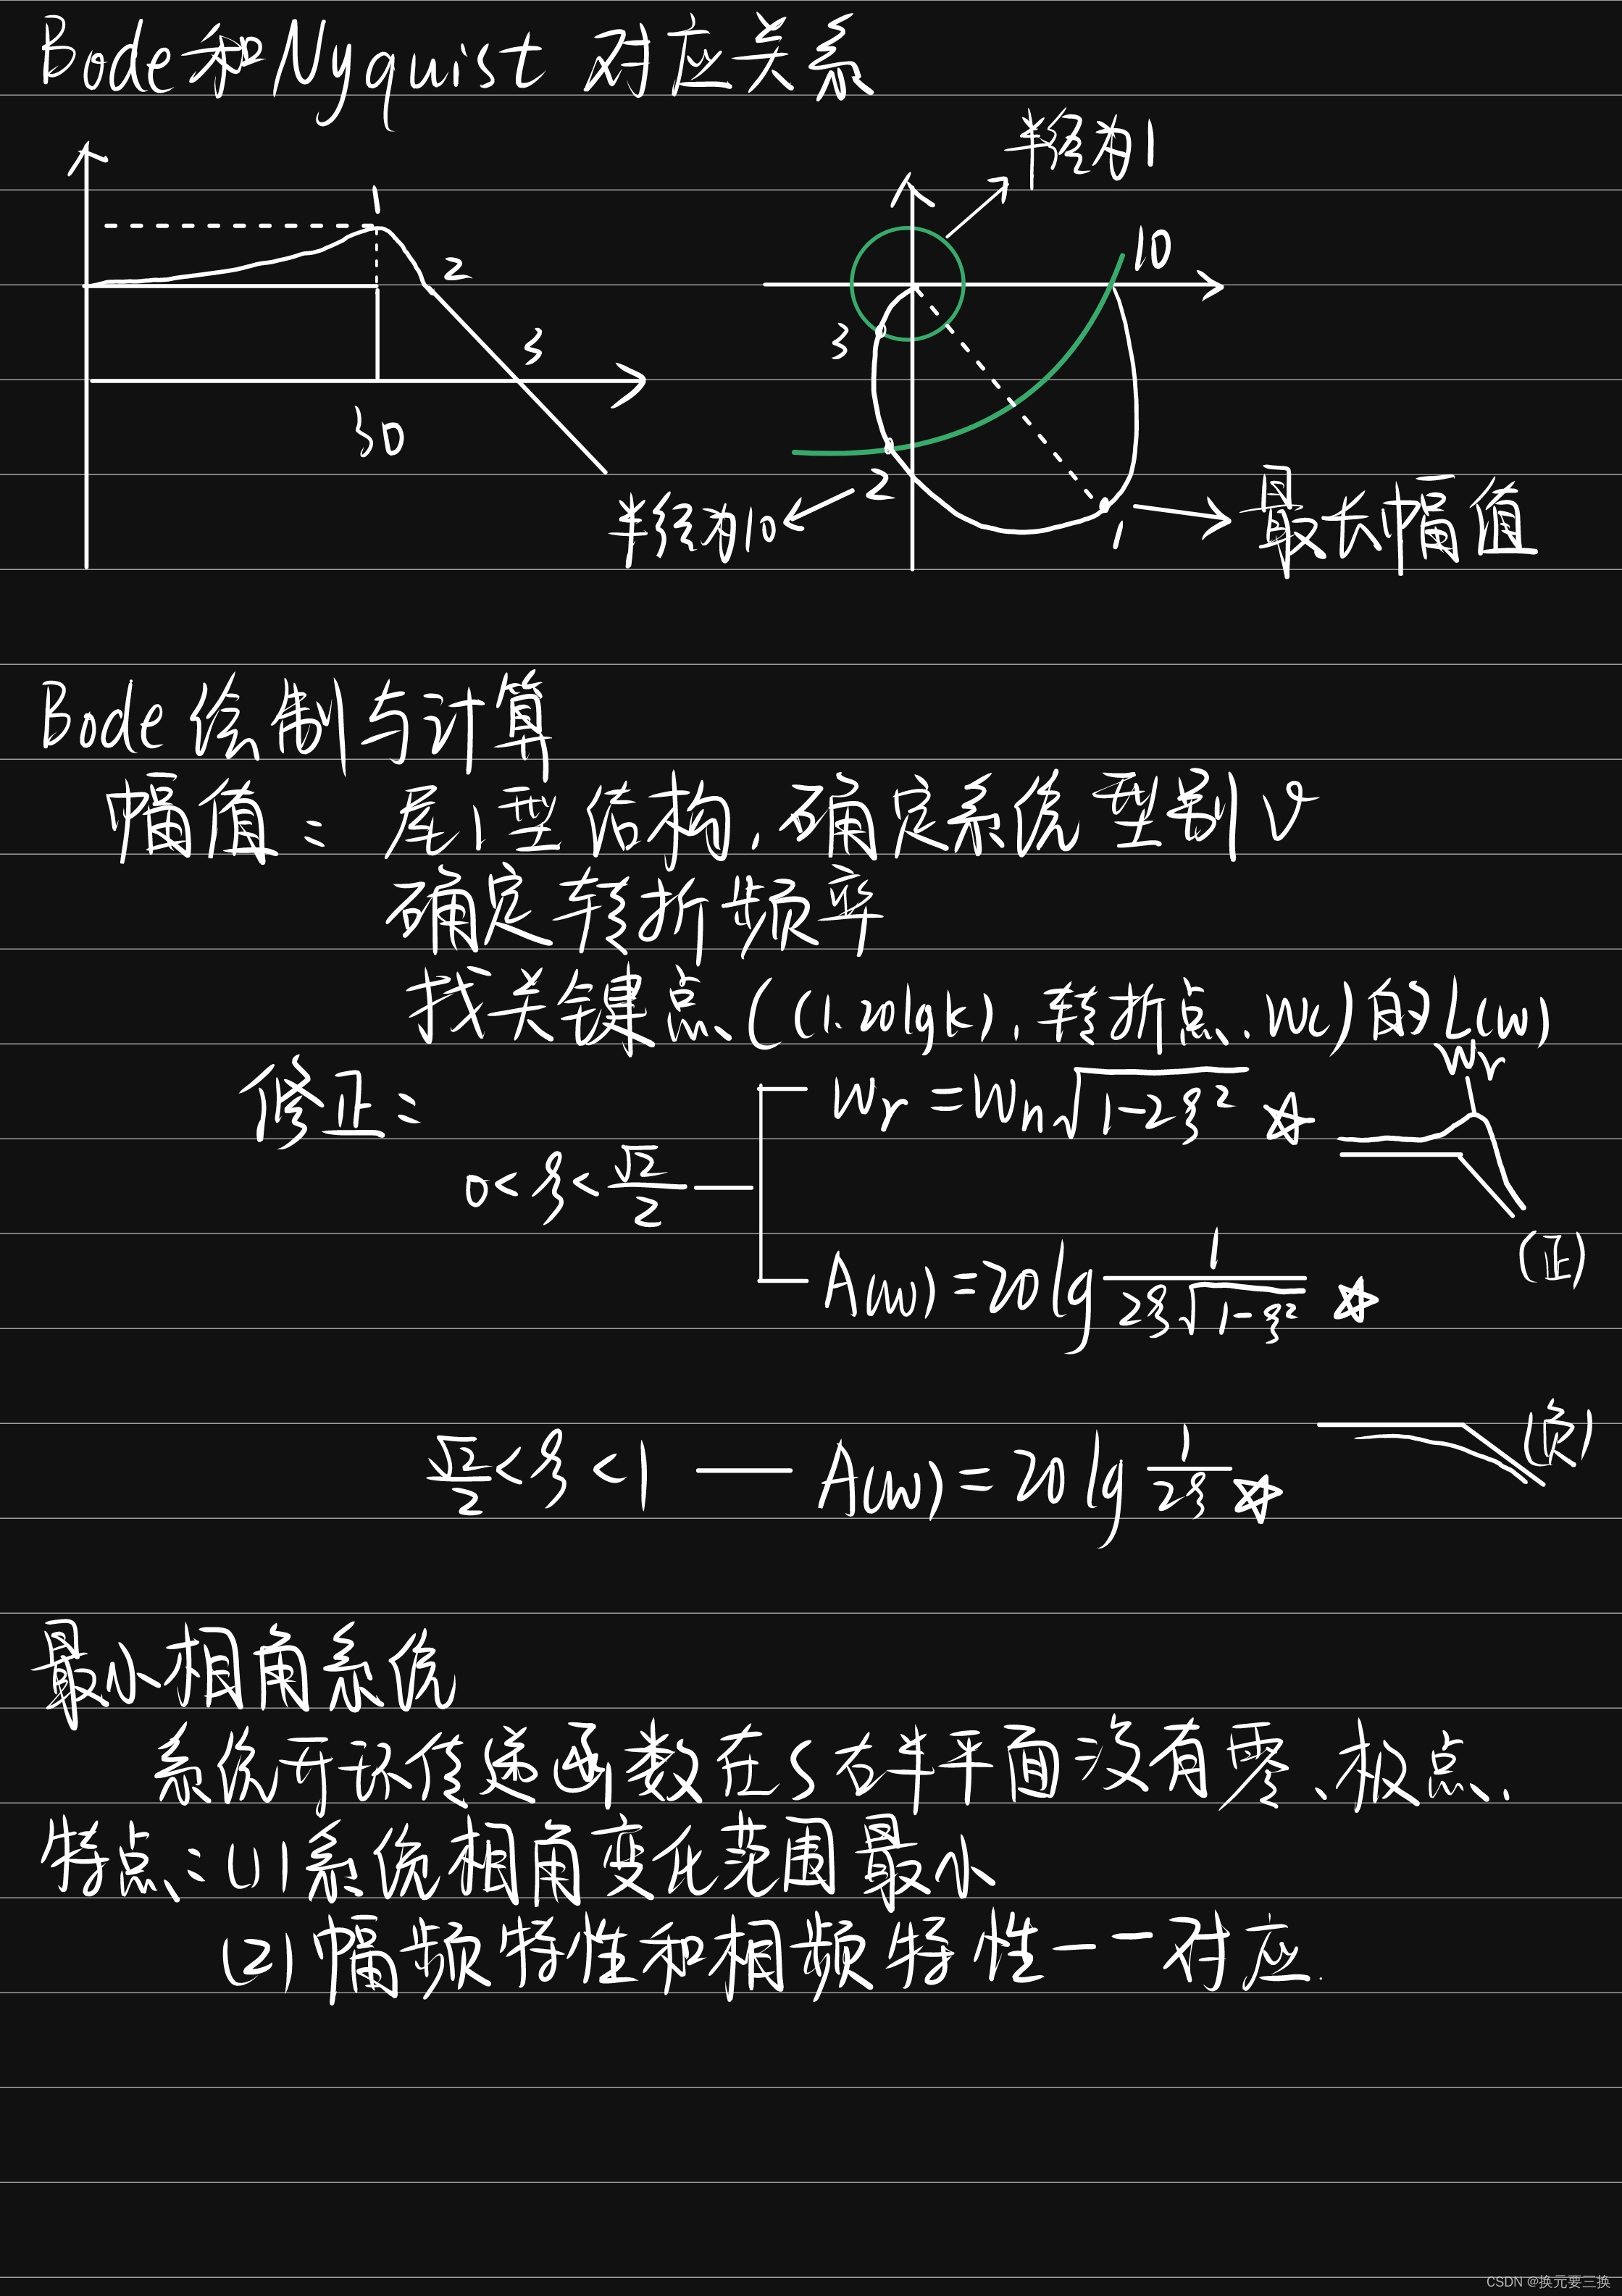 Bode和Nyquist 对应关系
半径为1
1
10
2
3
3
30
2
半径为10
1
最大幅值
Bode 绘制与计算
幅值: 尾1型结构,确定系统型别ν
确定转折频率
找关键点((1,20lgk),转折点,Wc)的L(w)
修正:
Wr = Wn√(1-2ξ²) ☆
Wr
0<ξ<√2/2
(正)
A(w) = 20lg 1/(2ξ√(1-ξ²)) ☆
√2/2<ξ<1 — A(w) = 20lg 1/(2ξ) ☆
(负)
最小相角系统
系统开环传递函数在S右半平面没有零、极点.
特点:(1)系统相角变化范围最小
(2)幅频特性和相频特性一一对应.
CSDN @换元要三换